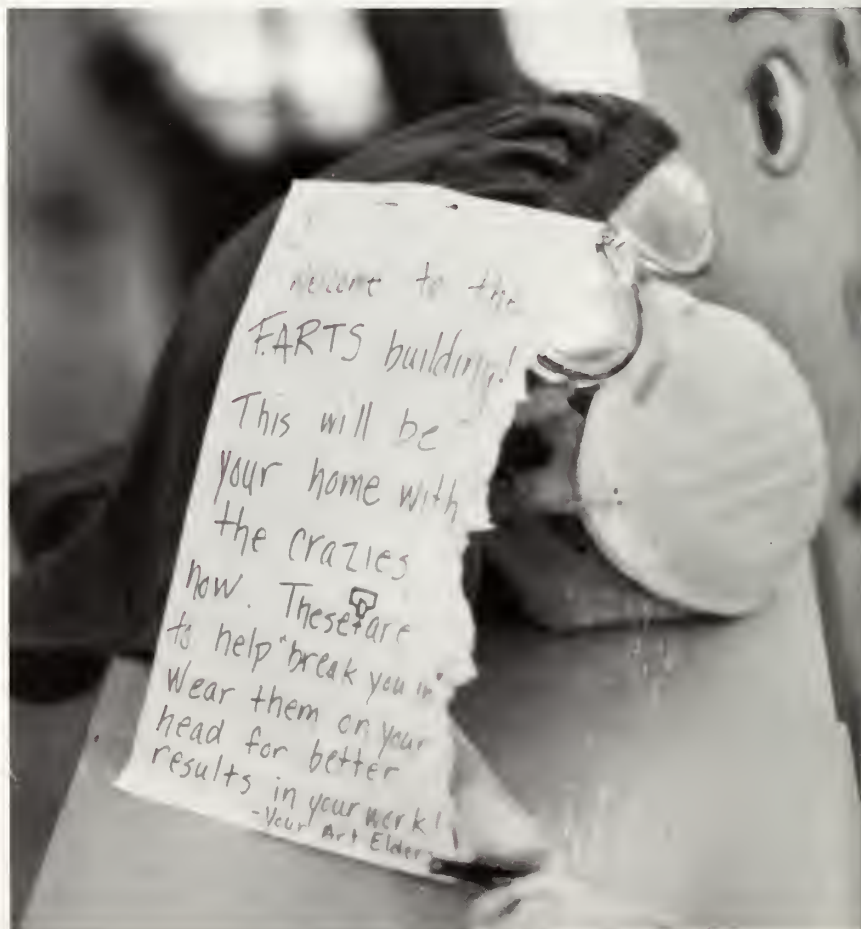 Welcome to the
FARTS building!
This will be
your home with
the crazies
now. These are
to help "break you in"
Wear them on your
head for better
results in your work!
-Your Art Elder